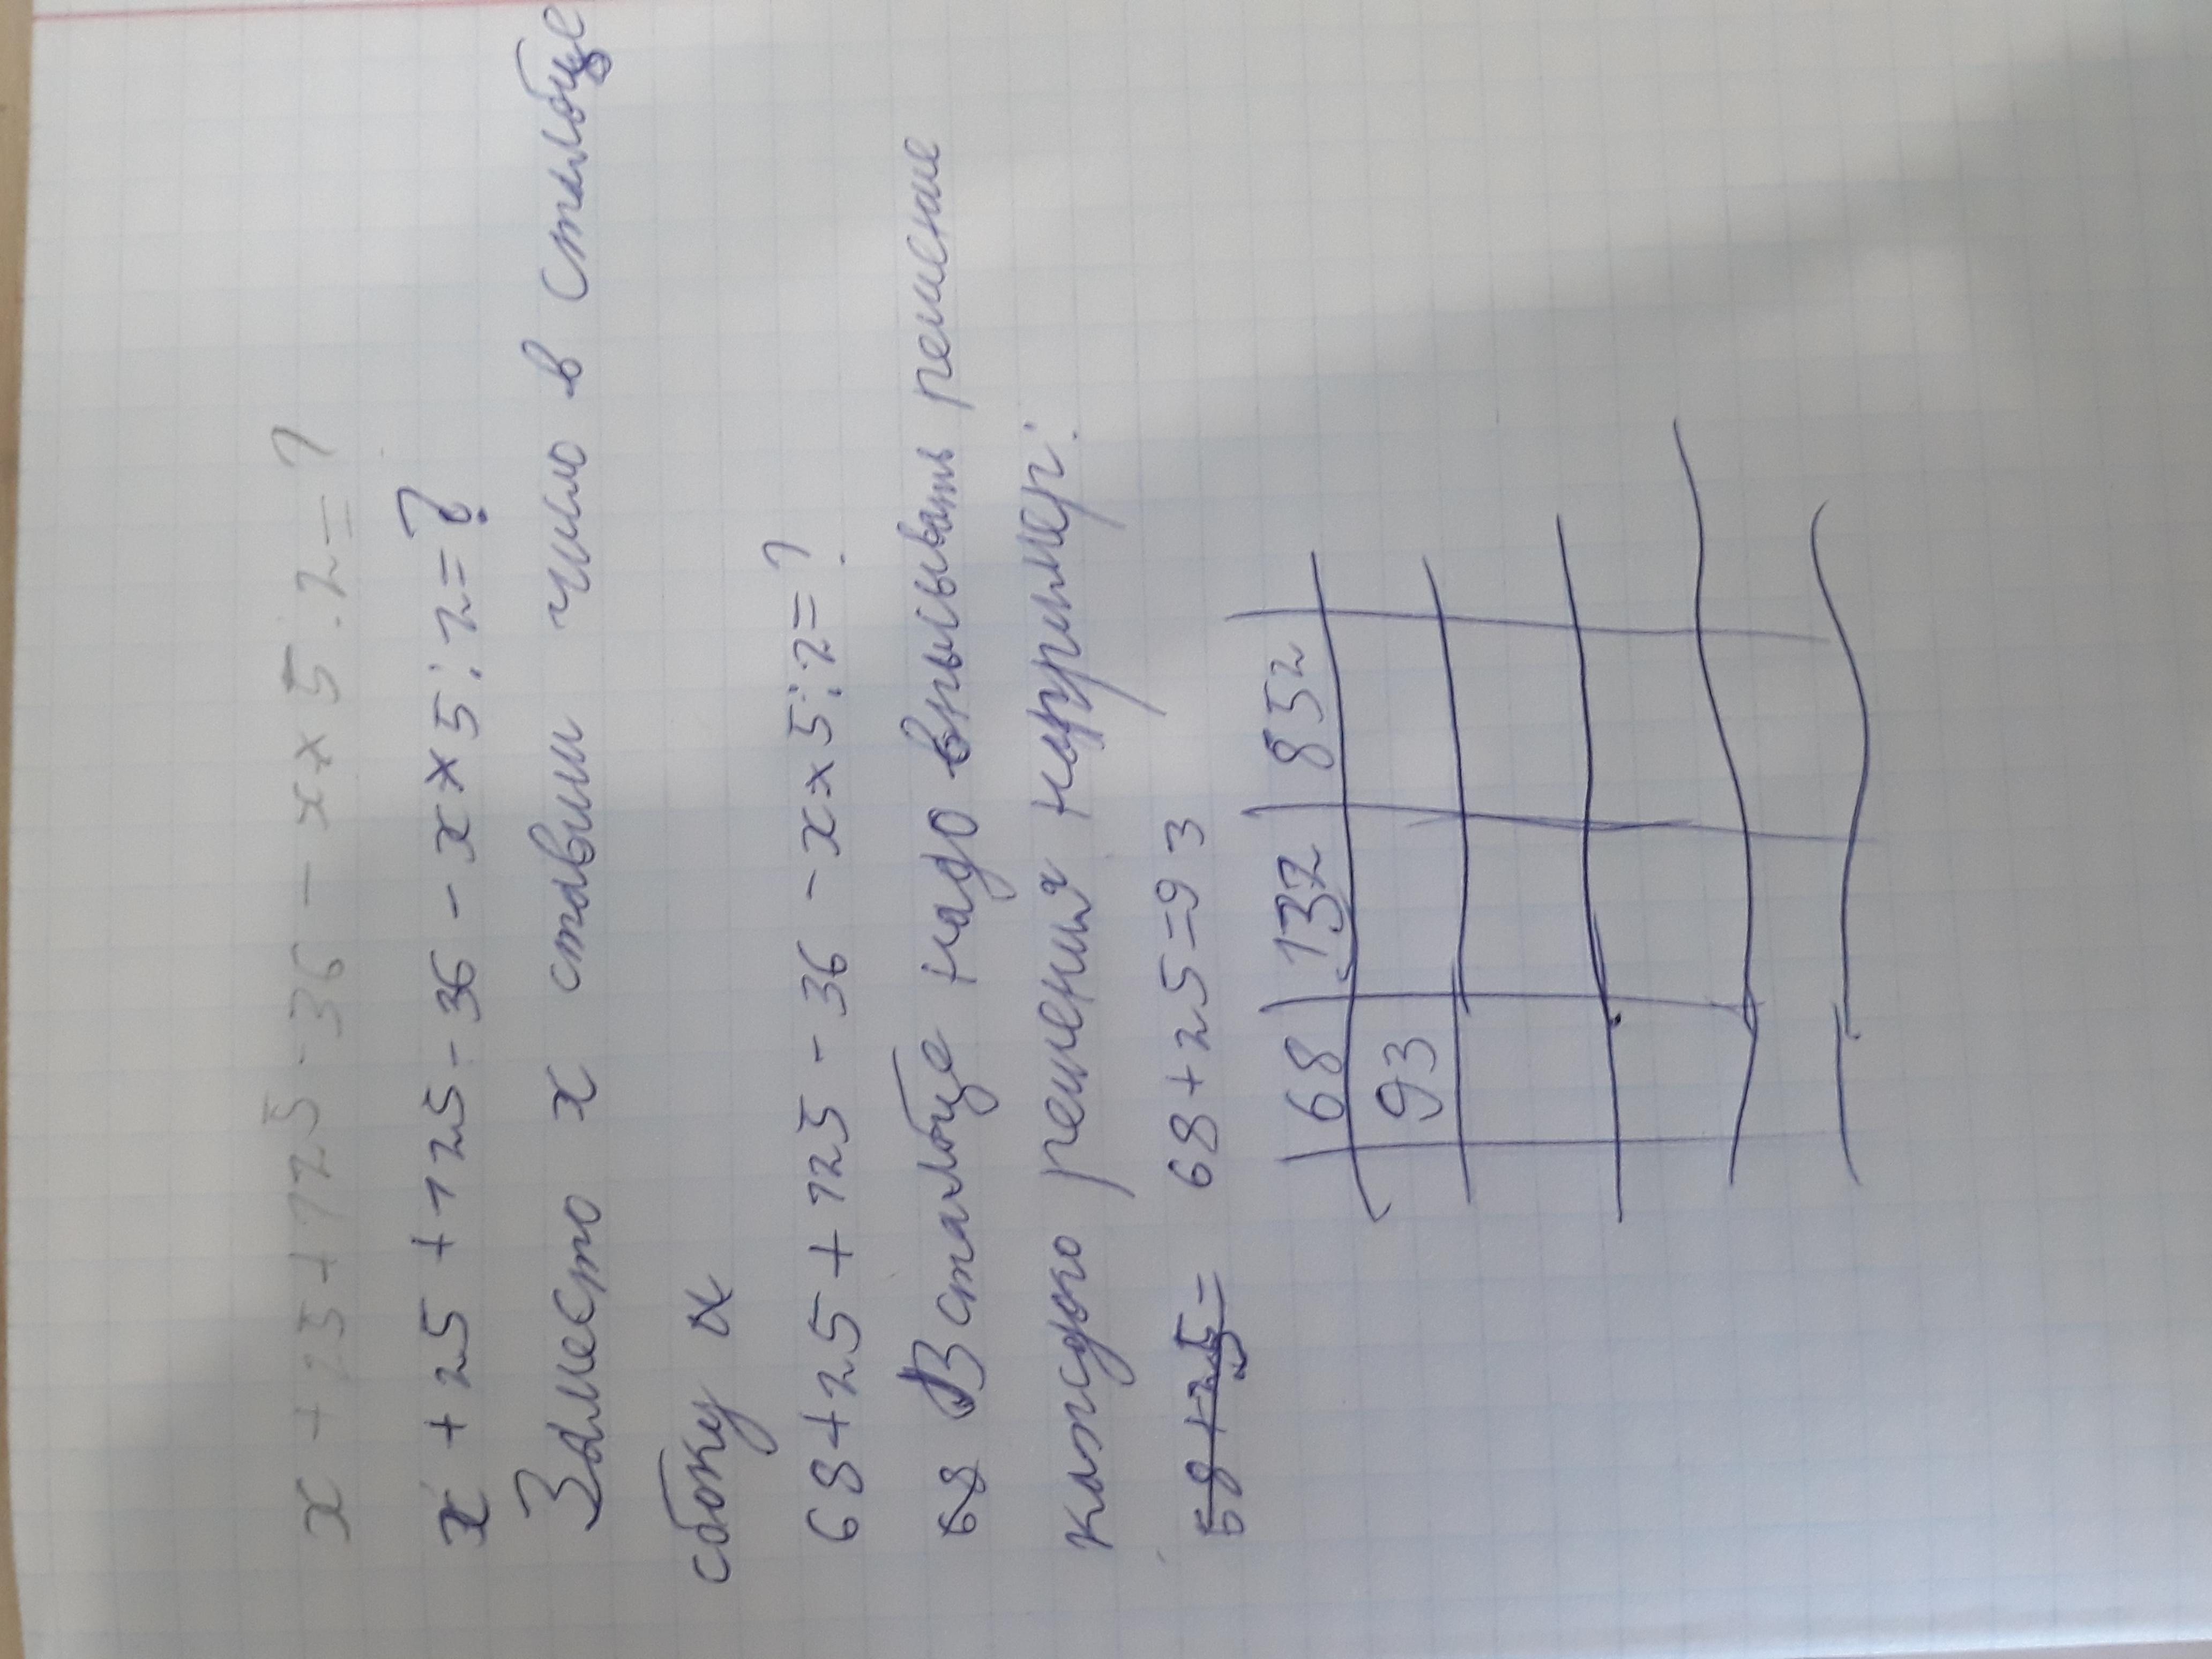 x + 25 + 125 - 36 - x × 5 : 2 = ?
x + 25 + 125 - 36 - x × 5 : 2 = ?
Заместо x ставим число в сталобце
сбоку
68 + 25 + 125 - 36 - x × 5 : 2 = ?
68 В сталобце надо вписывать решение
каждого решения например:
58 + 25 = 68 + 25 = 93
68 132 852
93